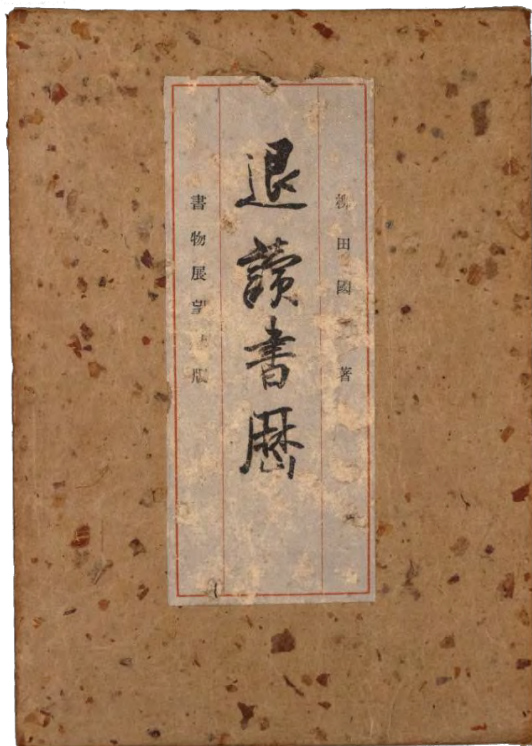 柳田國著
退讀書歴
書物展望版